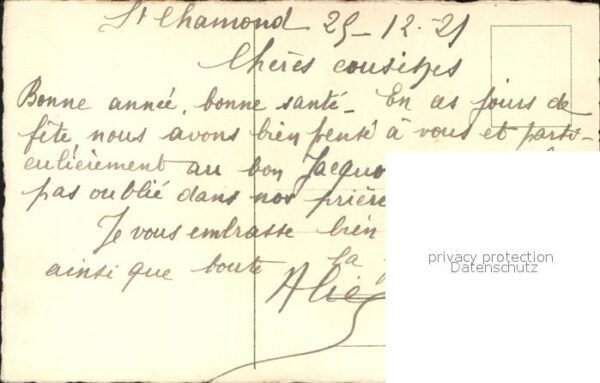 St Chamond 29-12-21
Chères cousines
Bonne année, bonne santé - En ces jours de
fête nous avons bien pensé à vous et parti-
culièrement au bon Jacquo
pas oublié dans nos prière
Je vous embrasse bien
ainsi que toute la
privacy protection
Datenschutz